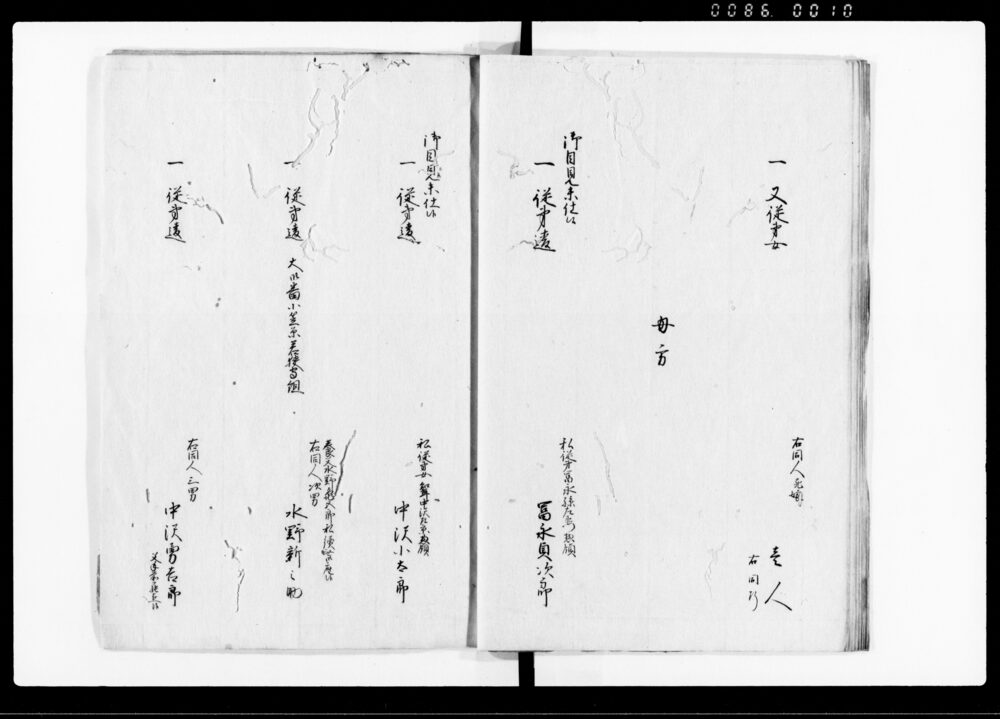 0086 0010
一 又従弟女
右同人死娘
壱人
右同断
母方
御目見未仕候
一 従弟違
私従弟冨永孫左衛門惣領
冨永貞次郎
御目見未仕候
一 従弟違
中沢小太郎
一 従弟違
大御番小笠原
組
右同人次男
水野新之助
一 従弟違
右同人三男
中沢勇吉郎